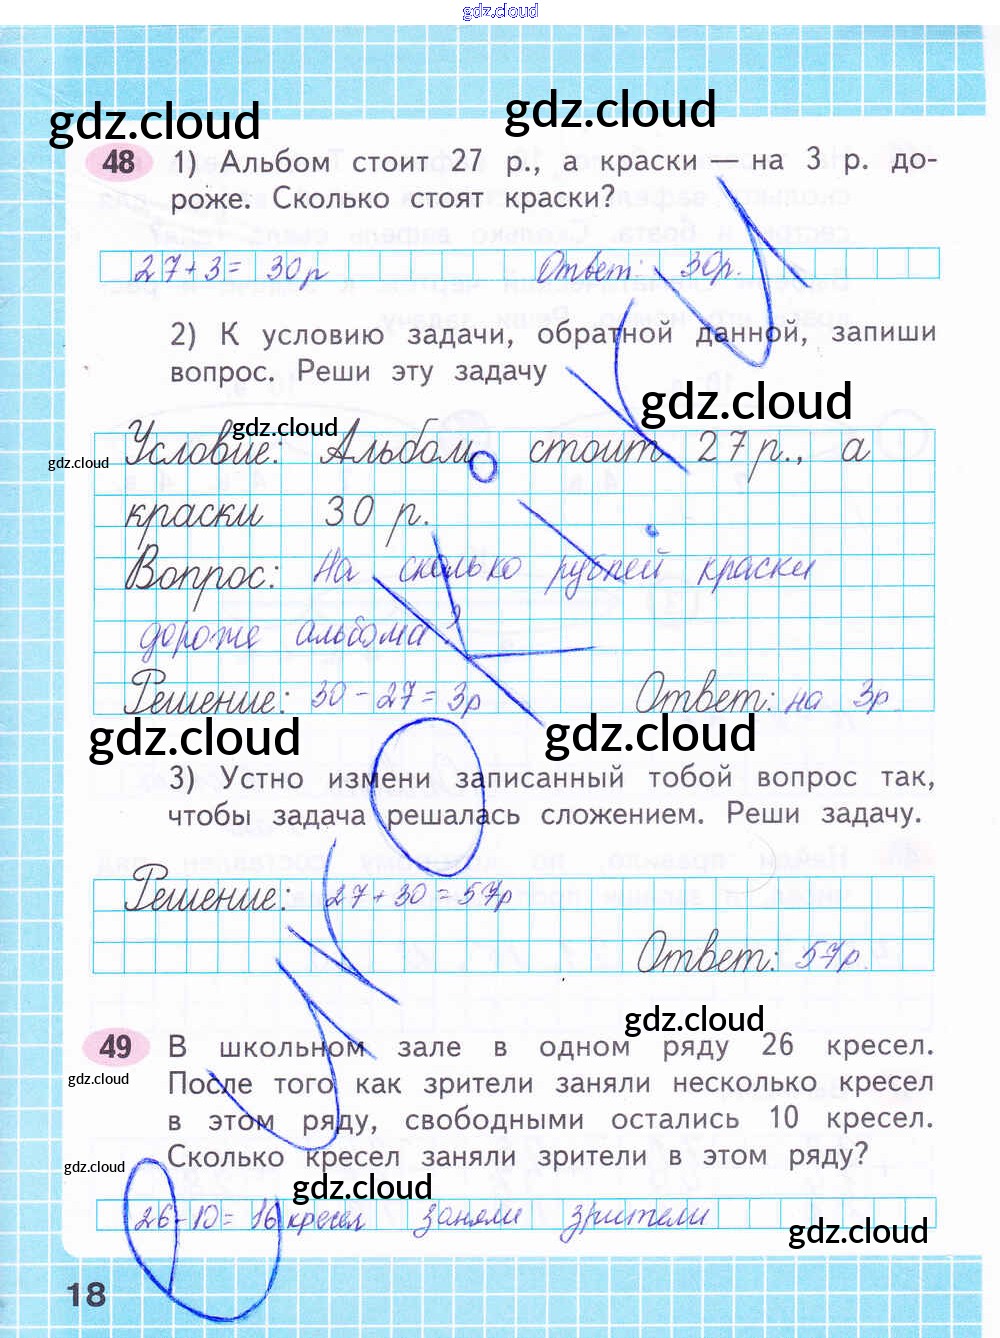 gdz.cloud
gdz.cloud
gdz.cloud
48 1) Альбом стоит 27 р., а краски — на 3 р. до-
роже. Сколько стоят краски?
27+3= 30р Ответ: 30р.
2) К условию задачи, обратной данной, запиши
вопрос. Реши эту задачу
gdz.cloud
gdz.cloud
Условие: Альбом стоит 27 р., а
gdz.cloud
краски 30 р.
Вопрос: На сколько рублей краски
дороже альбома?
Решение: 30-27=3р Ответ: на 3р
gdz.cloud
gdz.cloud
3) Устно измени записанный тобой вопрос так,
чтобы задача решалась сложением. Реши задачу.
Решение: 27+30=57р
Ответ: 57р.
gdz.cloud
49 В школьном зале в одном ряду 26 кресел.
gdz.cloud
После того как зрители заняли несколько кресел
в этом ряду, свободными остались 10 кресел.
Сколько кресел заняли зрители в этом ряду?
gdz.cloud
gdz.cloud
26-10= 16 кресел заняли зрители
gdz.cloud
18